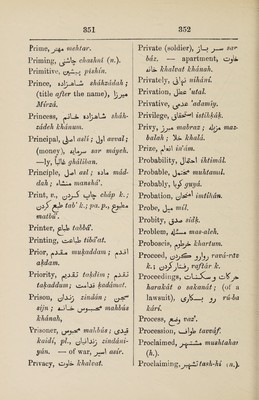 351
352
Prime, مهتر mehtar.
Priming, چاشنی chashni (n.).
Primitive, پیشین pishín.
Prince, شاهزاده sháhzádah ;
(title after the name), میرزا
Mírzá.
Princess, شاهزاده خانم sháh-
zádeh khánum.
Principal, اصلی asli ; اول avval ;
(money), سر مایه sar máyeh.
—ly, غالبا ghálìban.
Principle, اصل asl ; ماده mád-
dah ; منشاء manshá'.
Print, v., چاپ کردن cháp k. ;
طبع کردن tab' k. ; pa. p., مطبوع
matbú'.
Printer, طباع tabbá'.
Printing, طباعت tibá'at.
Prior, مقدم mukaddam ; اقدم
akdam.
Priority, تقدیم takdim ; تقدم
takaddum ; قدامت kadámat.
Prison, زندان zindán ; سجن
sijn ; محبوس خانه mahbús
khánah,
Prisoner, محبوس mahbús ; قیدی
kaidí, pl., زندانیان zindání-
yán. — of war, اسیر asír.
Privacy, خلوت khalvat.
Private (soldier), سر باز sar
báz. — apartment, خلوت
خانه khalvat khánah.
Privately, نهانی niháni.
Privation, عطل 'atal.
Privative, عدمی 'adamiy.
Privilege, استحقاق istihkák.
Privy, مبرز mabraz ; مزبله maz-
balah ; خلا khalá.
Prize, انعام in'ám.
Probability, احتمال ihtimál.
Probable, محتمل muhtamul.
Probably, گویا guyá.
Probation, امتحان imtihán.
Probe, میل míl.
Probity, صدق sidk.
Problem, مسئله mas-aleh.
Proboscis, خرطوم khartum.
Proceed, روانه شدن
k. ; رفتار کردن raftár k.
Proceedings, حرکات و سکنات
harakát o sakanát ; (of a
lawsuit), روبکاری rú-ba
kárí.
Process, وضع vaz'.
Procession, طواف tavváf.
Proclaimed, مشتهر mushtahar
(h.).
Proclaiming, تشهیر tash-hi (n.).